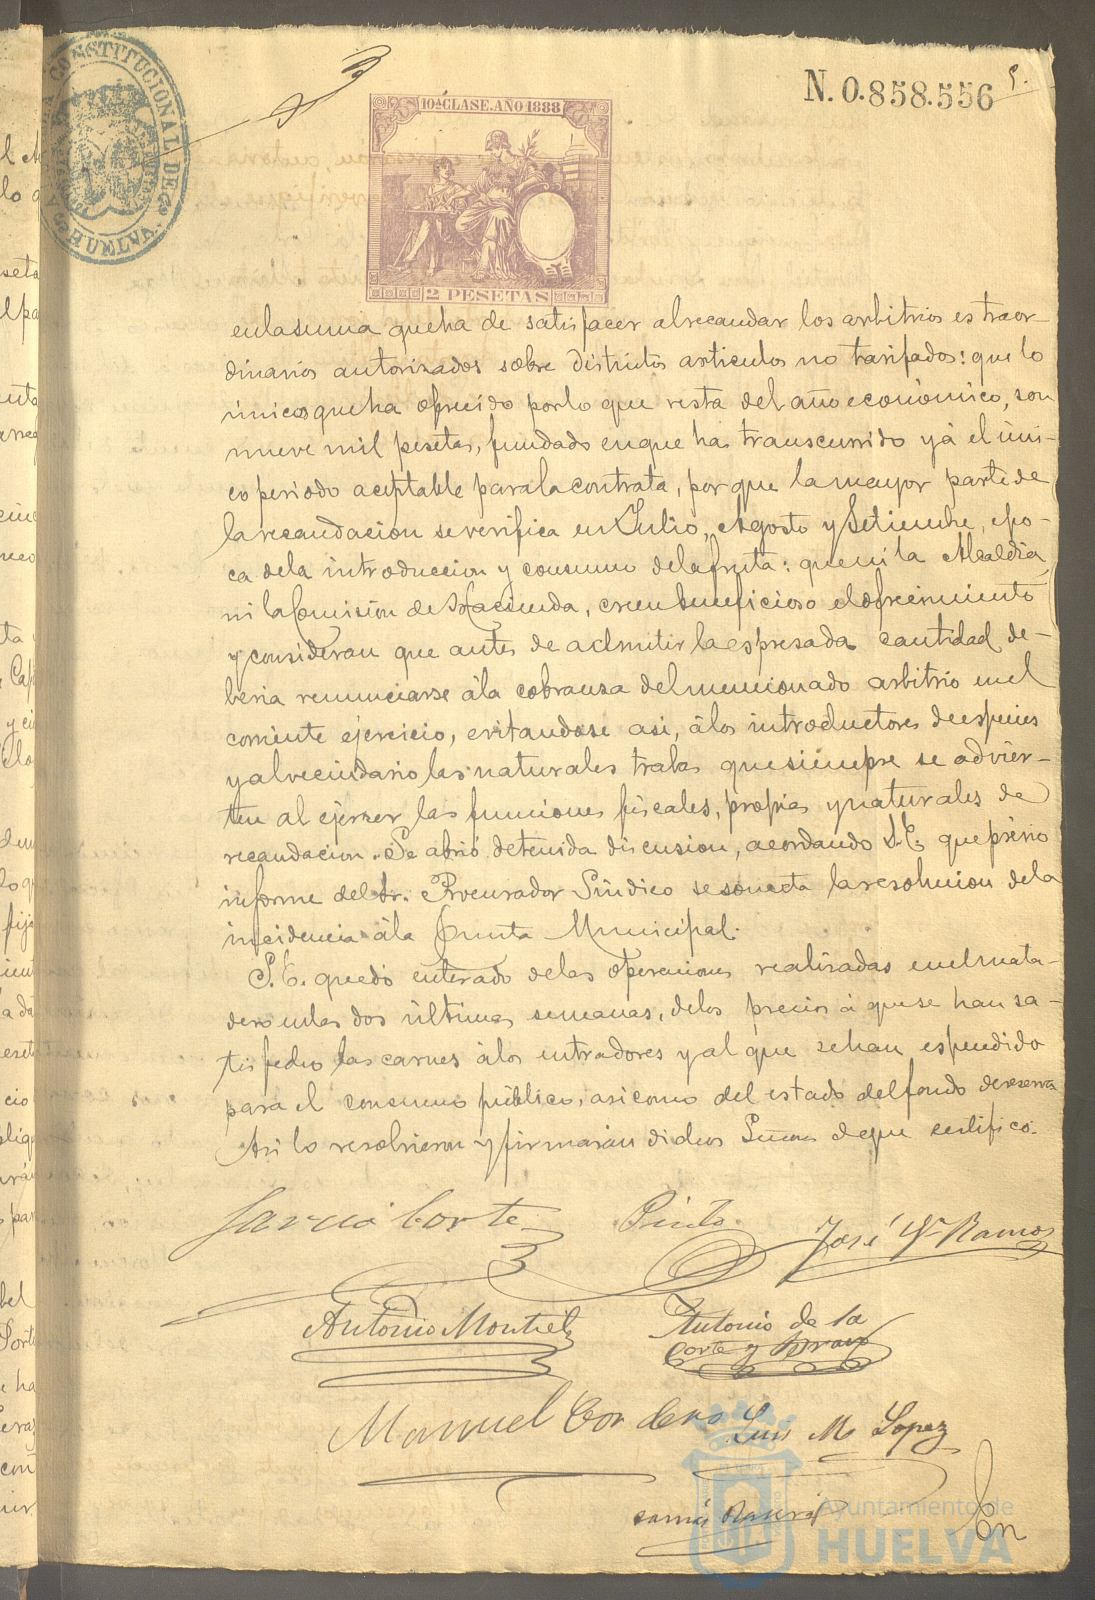 ALCALDIA CONSTITUCIONAL DE HUELVA
N. 0.858.556
5.
10ª CLASE. AÑO 1888
2 PESETAS
en la suma que ha de satisfacer al recaudar los arbitrios estraor-
dinarios autorizados sobre distintos articulos no tarifados: que lo
único que ha ofrecido por lo que resta del año económico, son
nueve mil pesetas, fundado en que ha transcurrido yá el úni-
co periodo aceptable para la contrata, por que la mayor parte de
la recaudacion se verifica en Julio, Agosto y Setiembre, épo-
ca de la introduccion y consumo de la fruta: que ni la Alcaldia
ni la Comisión de Hacienda, creen beneficioso el ofrecimiento
y consideran que antes de admitir la espresada cantidad de-
beria renunciarse á la cobransa del mencionado arbitrio en el
corriente ejercicio, evitandose asi, á los introductores de especies
y al vecindario las naturales trabas que siempre se advier-
ten al ejercer las funciones fiscales, propias y naturales de
recaudacion. Se abrió detenida discusion, acordando S.E. que prévio
informe del Sr. Procurador Síndico se someta la resolucion de la
incidencia á la Junta Municipal.
S.E. quedó enterado de las operaciones realizadas en el mata-
dero en las dos últimas semanas, de los precios á que se han sa-
tisfecho las carnes á los entradores y al que se han espendido
para el consumo público, asi como del estado del fondo de reserva
Asi lo resolvieron y firmarán dichos Señores de que certifico.
Garcia Corte
Pinto
José Gª Ramos
Antonio Montiel
Antonio de la
Corte y
Manuel Cordero
Luis M. Lopez
Ayuntamiento de
HUELVA